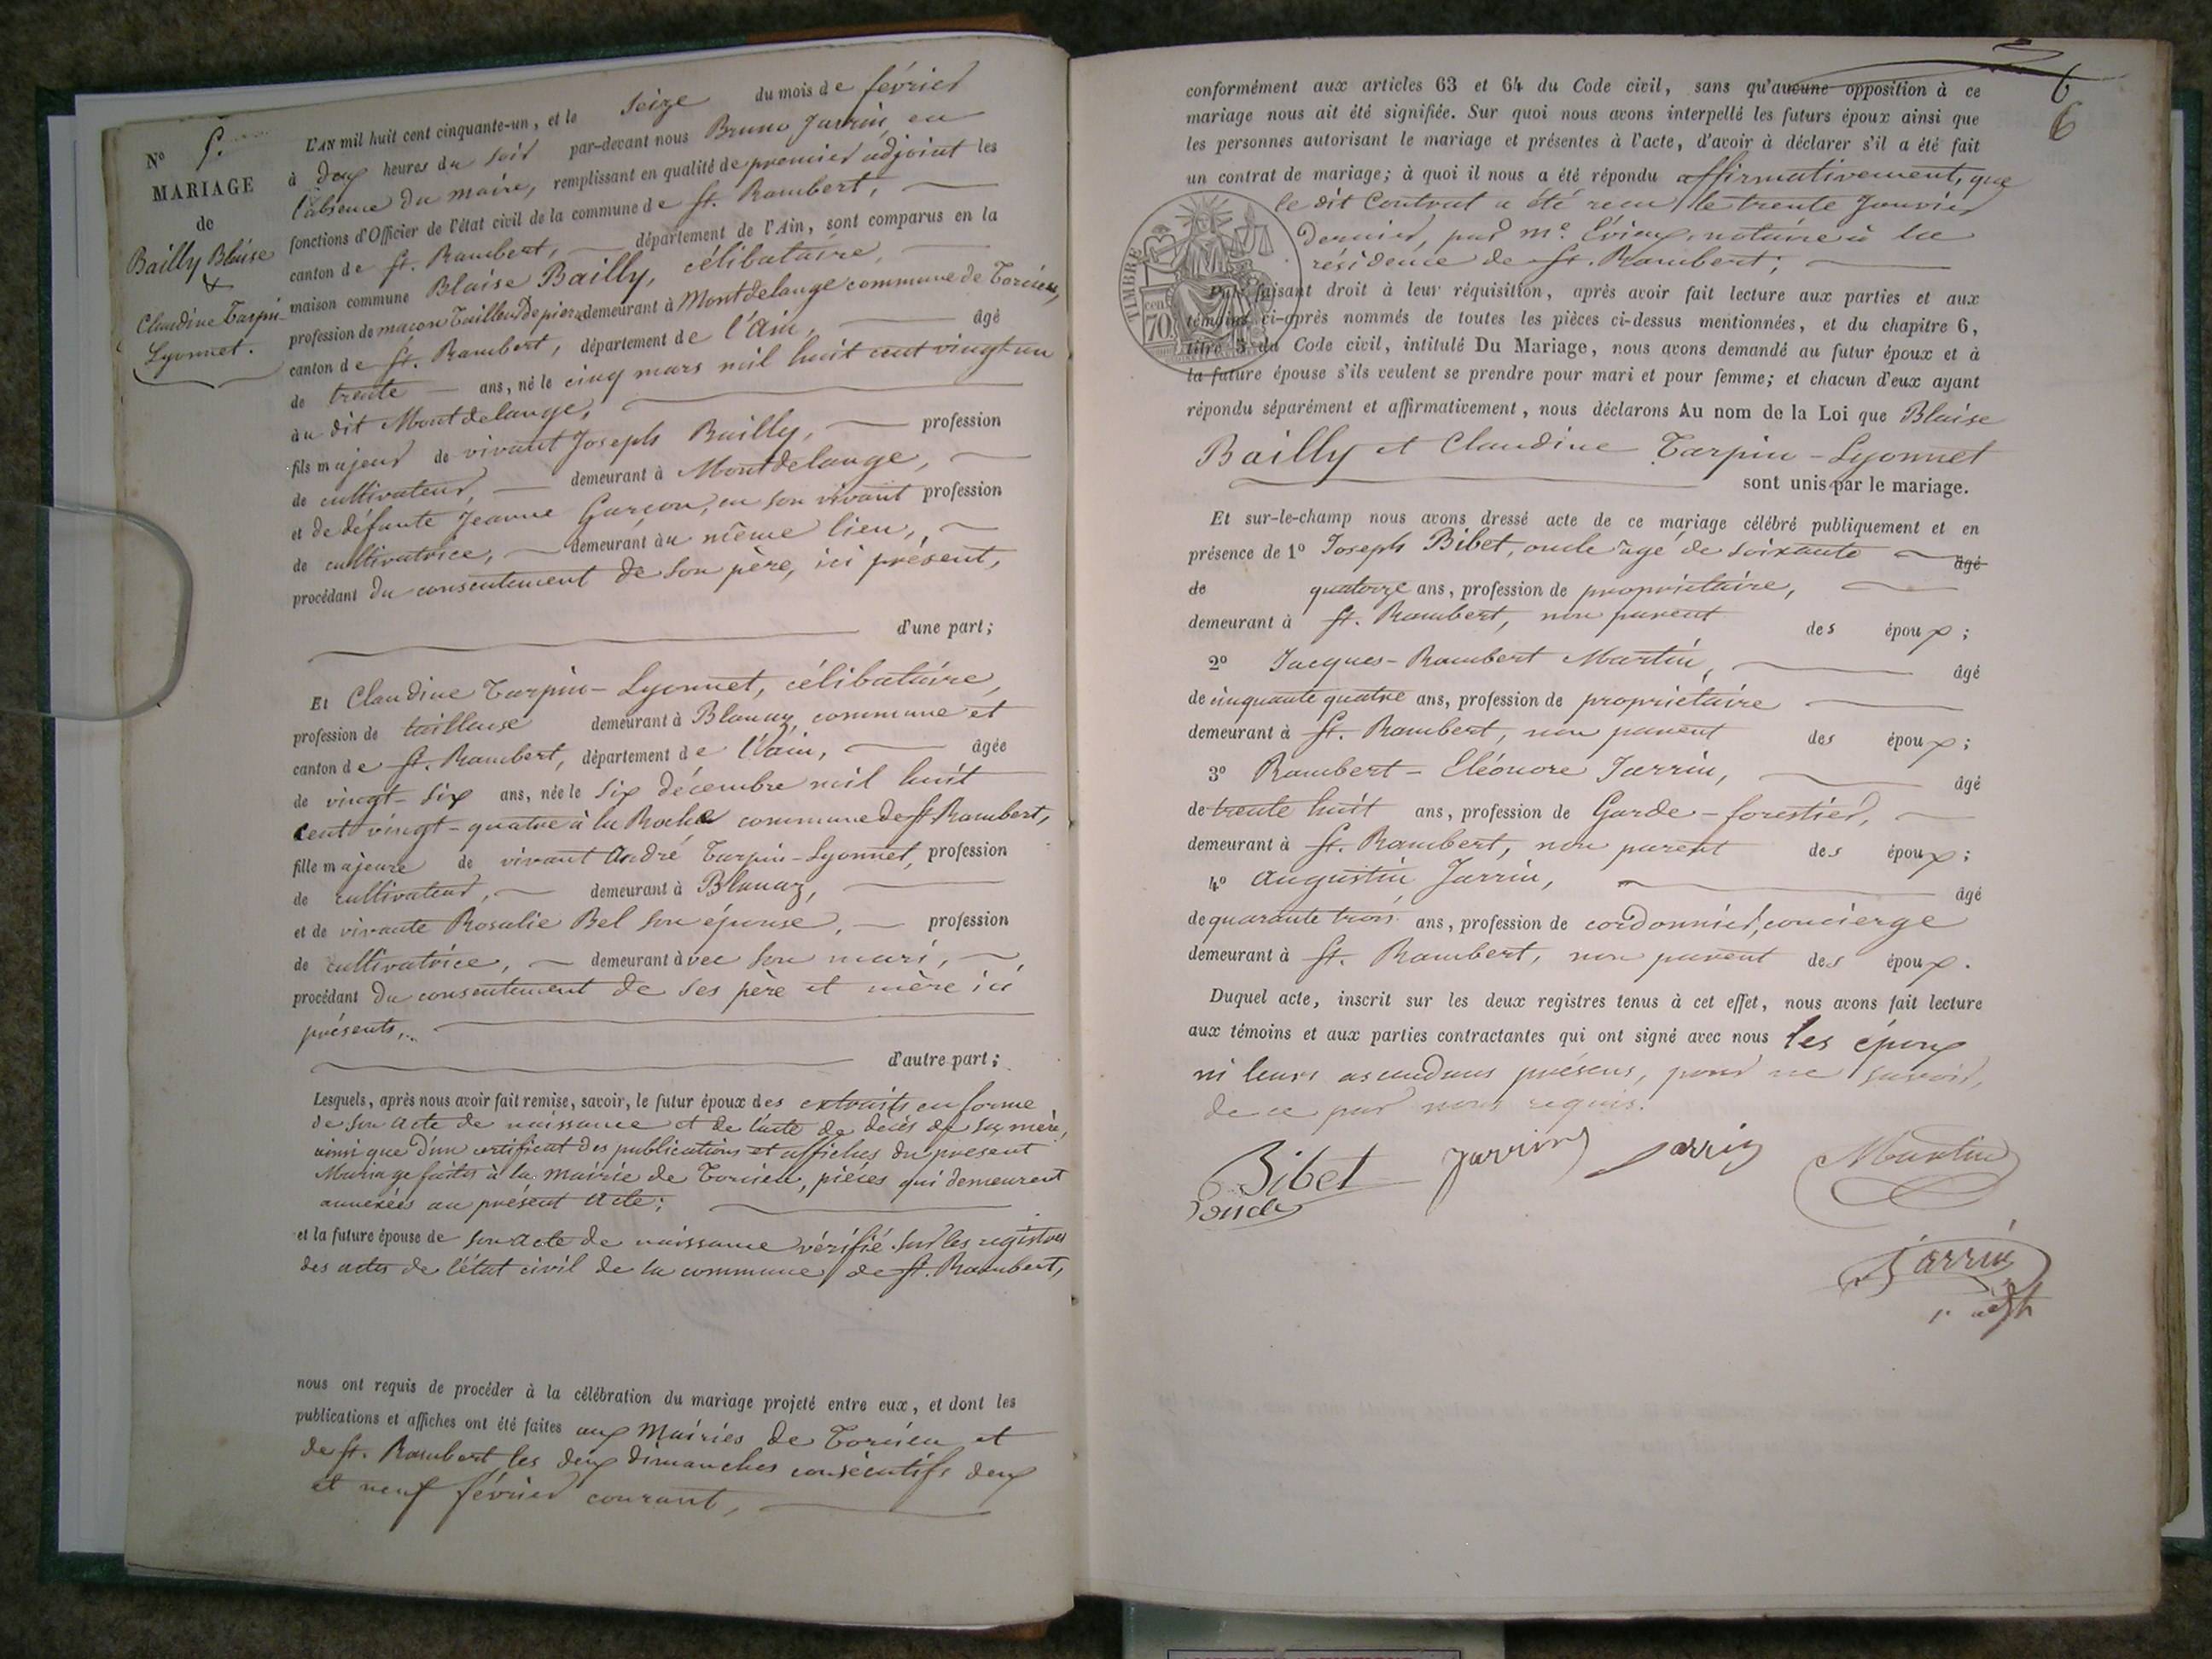 N° 5.
MARIAGE
de
Bailly Blaise
&
Claudine Tarpin-
Lyonnet.
L'AN mil huit cent cinquante-un, et le seize du mois de février
à deux heures du soir par-devant nous Bruno Jarrin, en
l'absence du maire, remplissant en qualité de premier adjoint les
fonctions d'Officier de l'état civil de la commune de St. Rambert,
canton de St. Rambert, département de l'Ain, sont comparus en la
maison commune Blaise Bailly, célibataire,
profession de maçon tailleur de pierre demeurant à Montdelange commune de Torcieu,
canton de St. Rambert, département de l'Ain, âgé
de trente ans, né le cinq mars mil huit cent vingt-un
au dit Montdelange,
fils majeur de vivant Joseph Bailly, profession
de cultivateur, demeurant à Montdelange,
et de défunte Jeanne Garçon, en son vivant profession
de cultivatrice, demeurant au même lieu,
procédant du consentement de son père, ici présent,
d'une part;
Et Claudine Tarpin-Lyonnet, célibataire,
profession de tailleuse demeurant à Blanaz, commune et
canton de St. Rambert, département de l'Ain, âgée
de vingt-six ans, née le six décembre mil huit
cent vingt-quatre à la Roche commune de St. Rambert,
fille majeure de vivant André Tarpin-Lyonnet, profession
de cultivateur, demeurant à Blanaz,
et de vivante Rosalie Bel son épouse, profession
de cultivatrice, demeurant avec son mari,
procédant du consentement de ses père et mère ici
présents,
d'autre part;
Lesquels, après nous avoir fait remise, savoir, le futur époux des extraits en forme
de son acte de naissance et de l'acte de décès de sa mère,
ainsi que d'un certificat des publications et affiches du présent
Mariage faites à la mairie de Torcieu, pièces qui demeurent
annexées au présent acte;
et la future épouse de son acte de naissance vérifié sur les registres
des actes de l'état civil de la commune de St. Rambert,
nous ont requis de procéder à la célébration du mariage projeté entre eux, et dont les
publications et affiches ont été faites aux Mairies de Torcieu et
de St. Rambert les deux dimanches consécutifs deux
et neuf février courant,
6
6
conformément aux articles 63 et 64 du Code civil, sans qu'aucune opposition à ce
mariage nous ait été signifiée. Sur quoi nous avons interpellé les futurs époux ainsi que
les personnes autorisant le mariage et présentes à l'acte, d'avoir à déclarer s'il a été fait
un contrat de mariage; à quoi il nous a été répondu affirmativement, que
le dit Contrat a été reçu le trente Janvier
dernier, par Me. notaire à la
résidence de St. Rambert;
TIMBRE
70 cen
Puis faisant droit à leur réquisition, après avoir fait lecture aux parties et aux
témoins ci-après nommés de toutes les pièces ci-dessus mentionnées, et du chapitre 6,
titre 5 du Code civil, intitulé Du Mariage, nous avons demandé au futur époux et à
la future épouse s'ils veulent se prendre pour mari et pour femme; et chacun d'eux ayant
répondu séparément et affirmativement, nous déclarons Au nom de la Loi que Blaise
Bailly et Claudine Tarpin-Lyonnet
sont unis par le mariage.
Et sur-le-champ nous avons dressé acte de ce mariage célébré publiquement et en
présence de 1° Joseph Bibet, oncle âgé de soixante âgé
de quatorze ans, profession de propriétaire,
demeurant à St. Rambert, non parent des époux;
2° Jacques-Rambert Martin, âgé
de cinquante quatre ans, profession de propriétaire
demeurant à St. Rambert, non parent des époux;
3° Rambert-Eléonore Jarrin, âgé
de trente huit ans, profession de Garde-forestier,
demeurant à St. Rambert, non parent des époux;
4° Augustin Jarrin, âgé
de quarante trois ans, profession de cordonnier, concierge
demeurant à St. Rambert, non parent des époux.
Duquel acte, inscrit sur les deux registres tenus à cet effet, nous avons fait lecture
aux témoins et aux parties contractantes qui ont signé avec nous les époux
ni leurs ascendans présens, pour ne savoir,
de ce par nous requis.
Bibet Jarrin Jarrin Martin
oncle
Jarrin
1er adjt